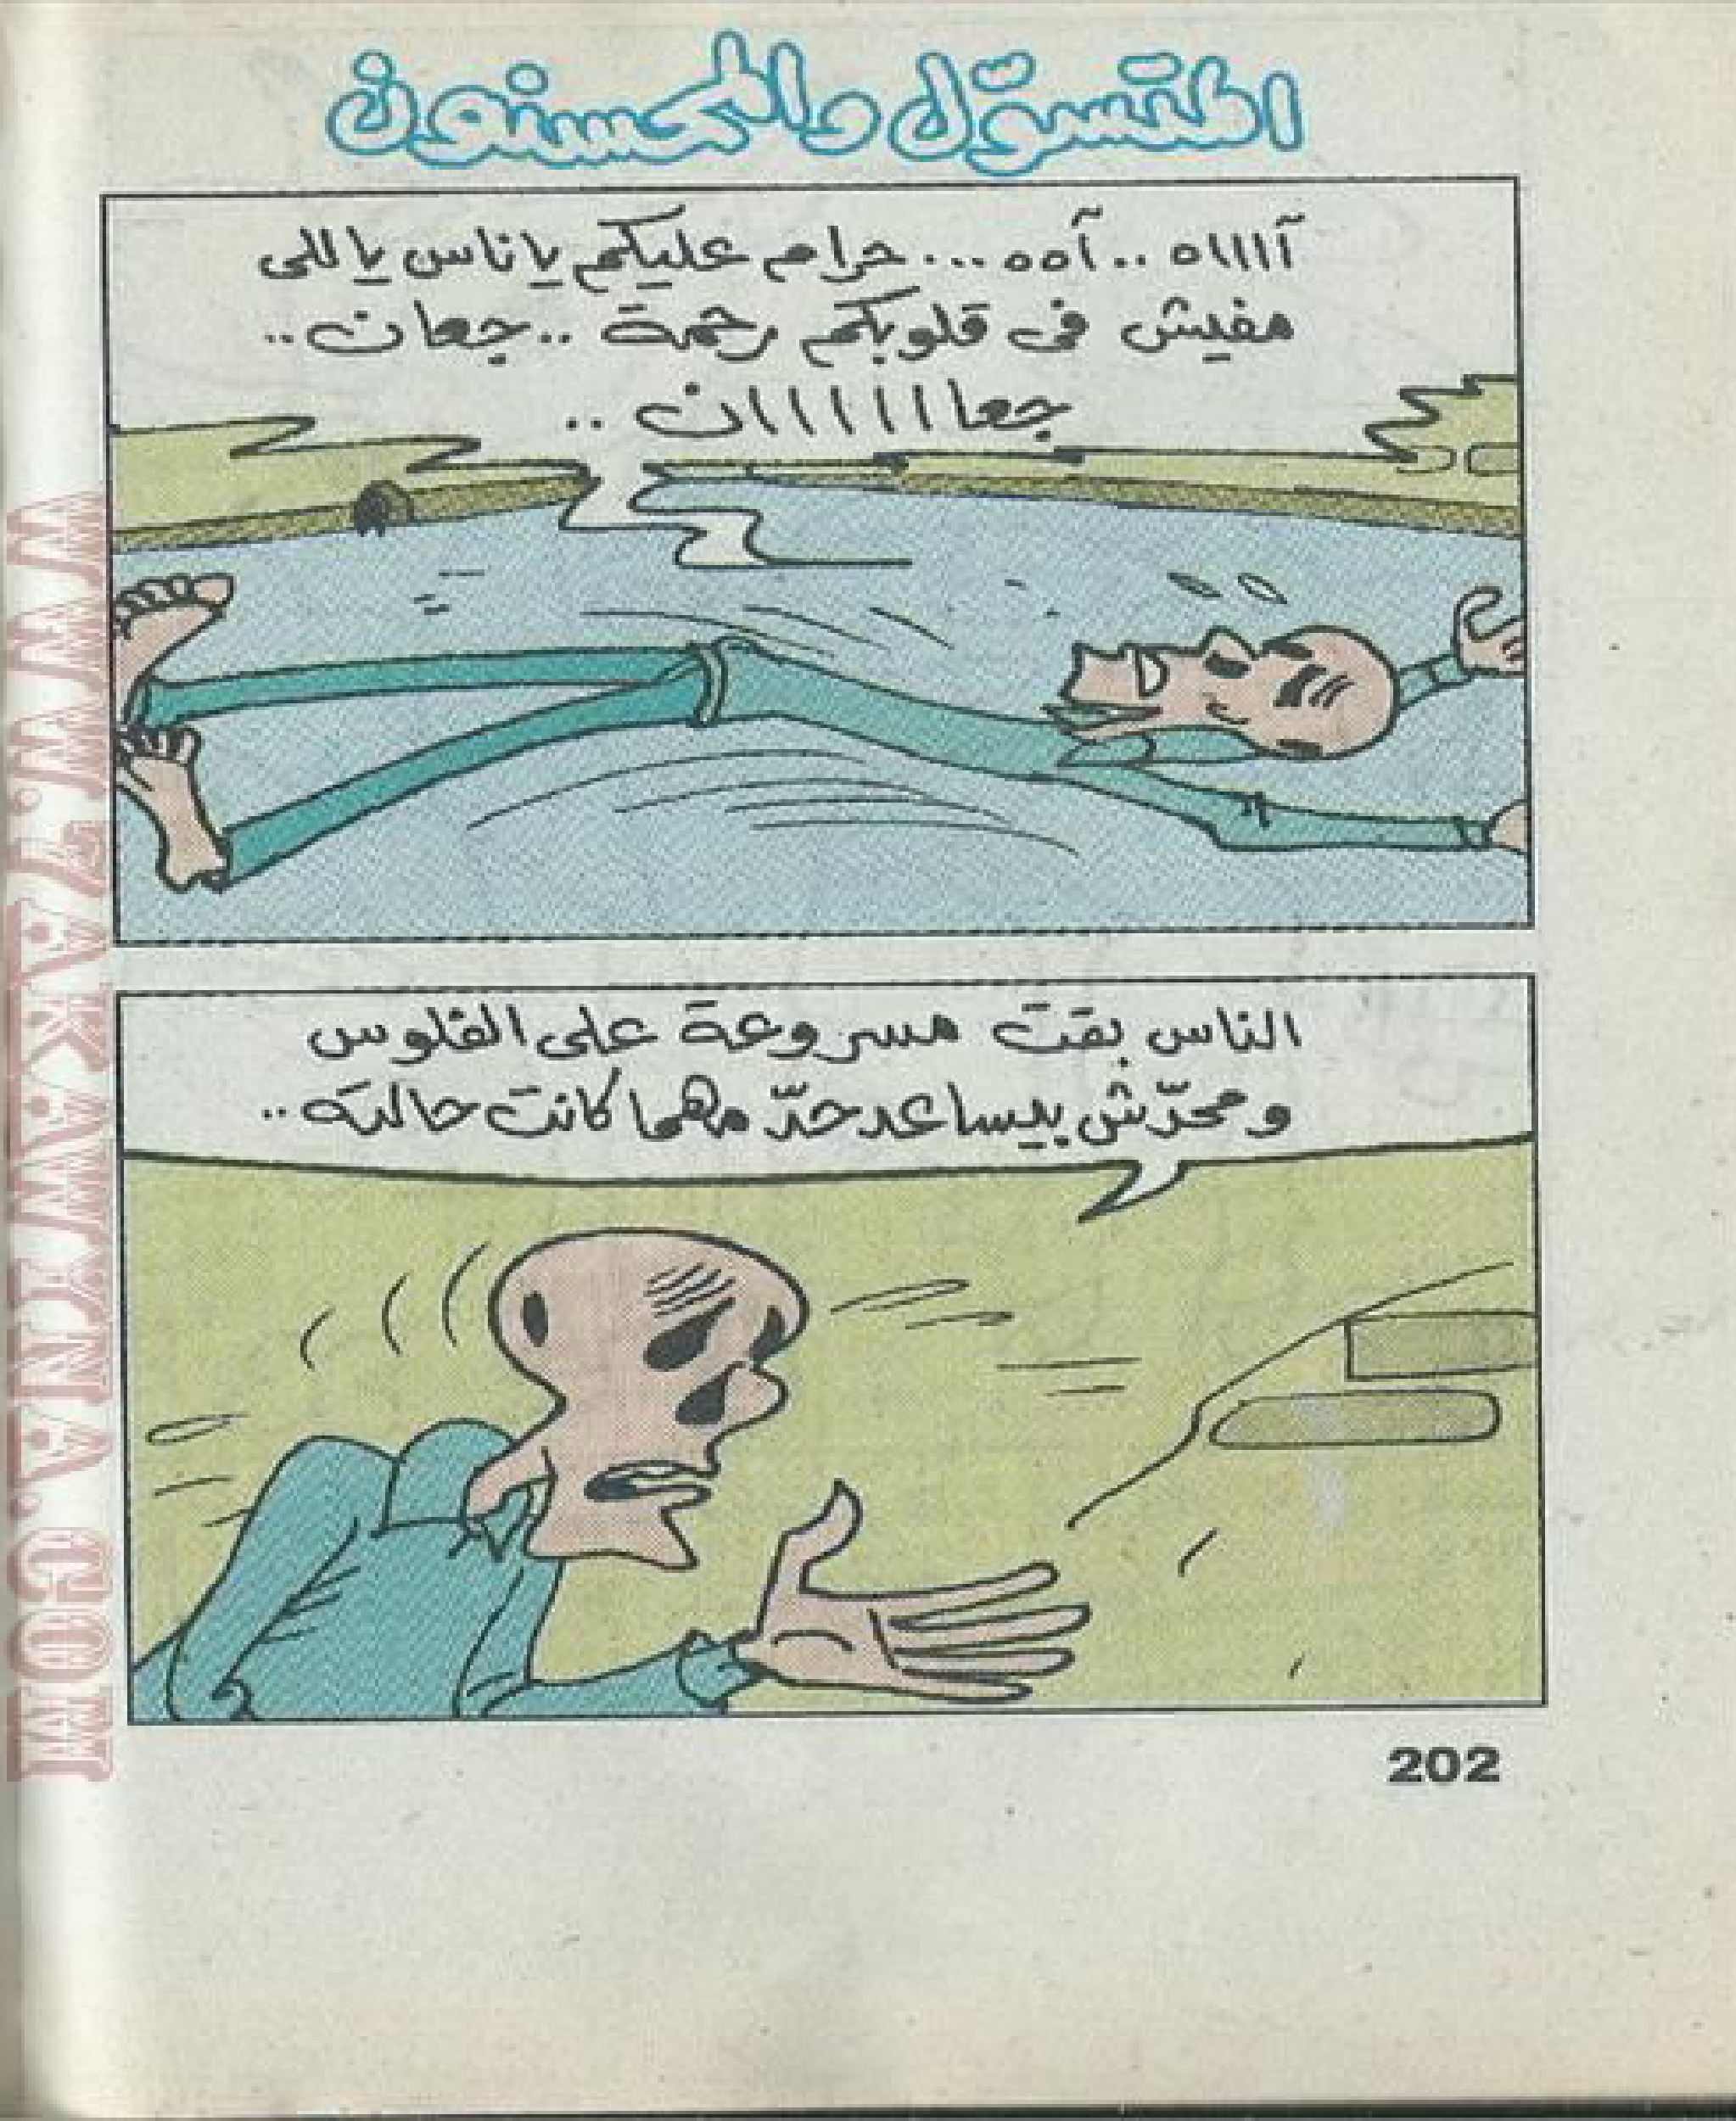 المتسوّل والمحسنون
آااااه .. آهه ... حرام عليكم ياناس ياللى
مفيش فى قلوبكم رحمة .. جعان ..
جعاااااااان ..
الناس بقت مسروعة على الفلوس
ومحدّش بيساعد حدّ مهما كانت حالته ..
202